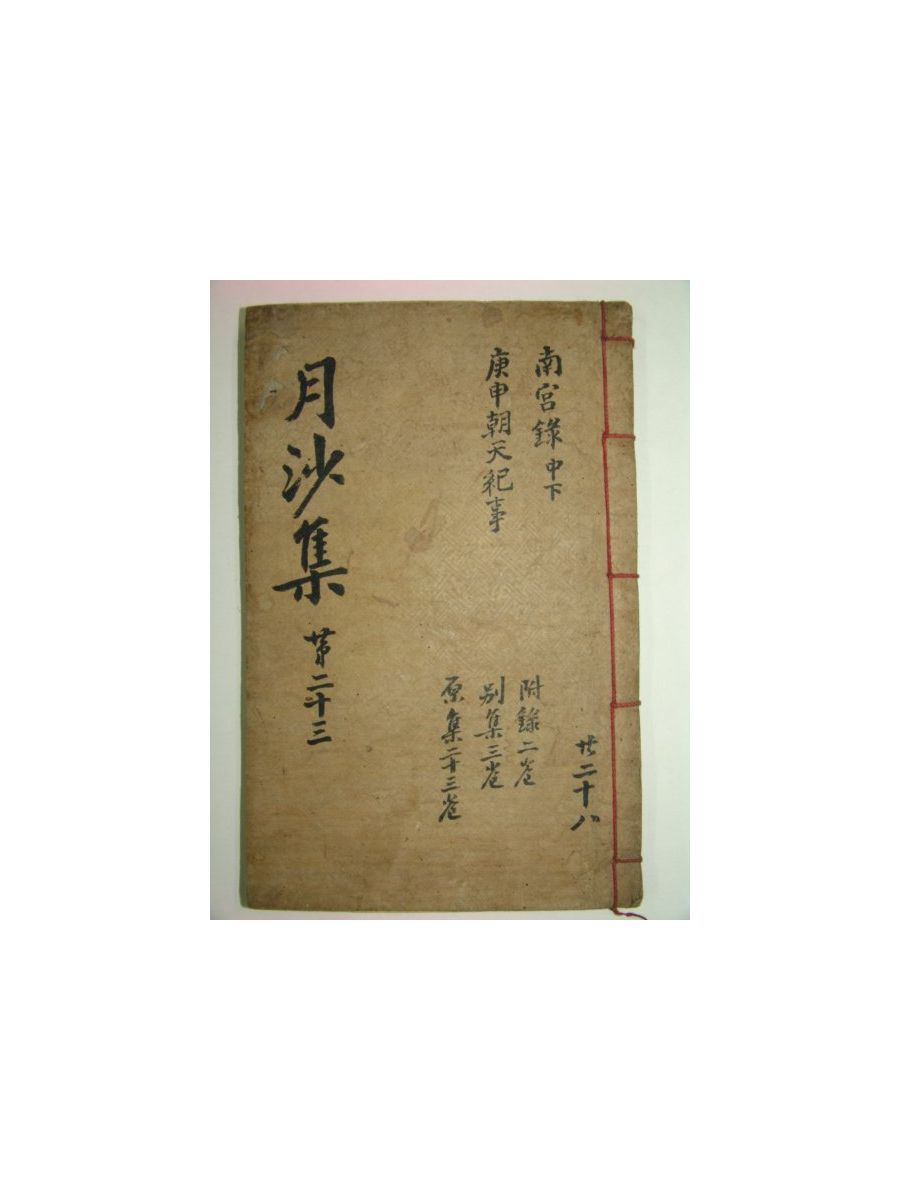 南宮錄 中下
庚申朝天紀事
共二十八
附錄二卷
別集三卷
原集二十三卷
月沙集 第二十三